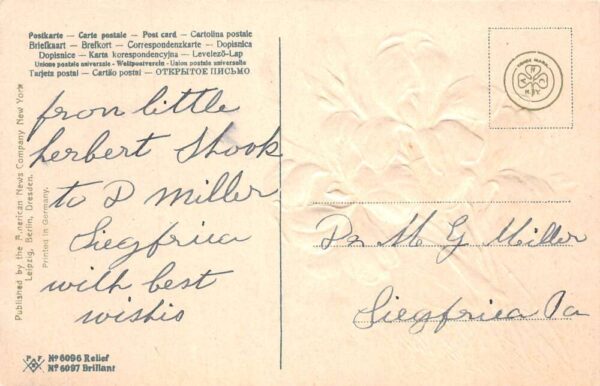 Postkarte – Carte postale – Post card – Cartolina postale
Briefkaart – Brefkort – Correspondenzkarte – Dopisnica
Dopisnice – Karta korespondencyjna – Levelező-Lap
Unione postale universale – Weltpostverein – Union postale universelle
Tarjeta postal – Cartão postal – ОТКРЫТОЕ ПИСЬМО
from little
herbert Shook
to D Miller
Siegfriea
with best
wishis
Published by the American News Company New York
Leipzig, Berlin, Dresden.
Printed in Germany.
TRADE MARK
A N C
N.Y.
Dr M G Miller
Siegfriea Pa
P F B
No 6096 Relief
No 6097 Brillant